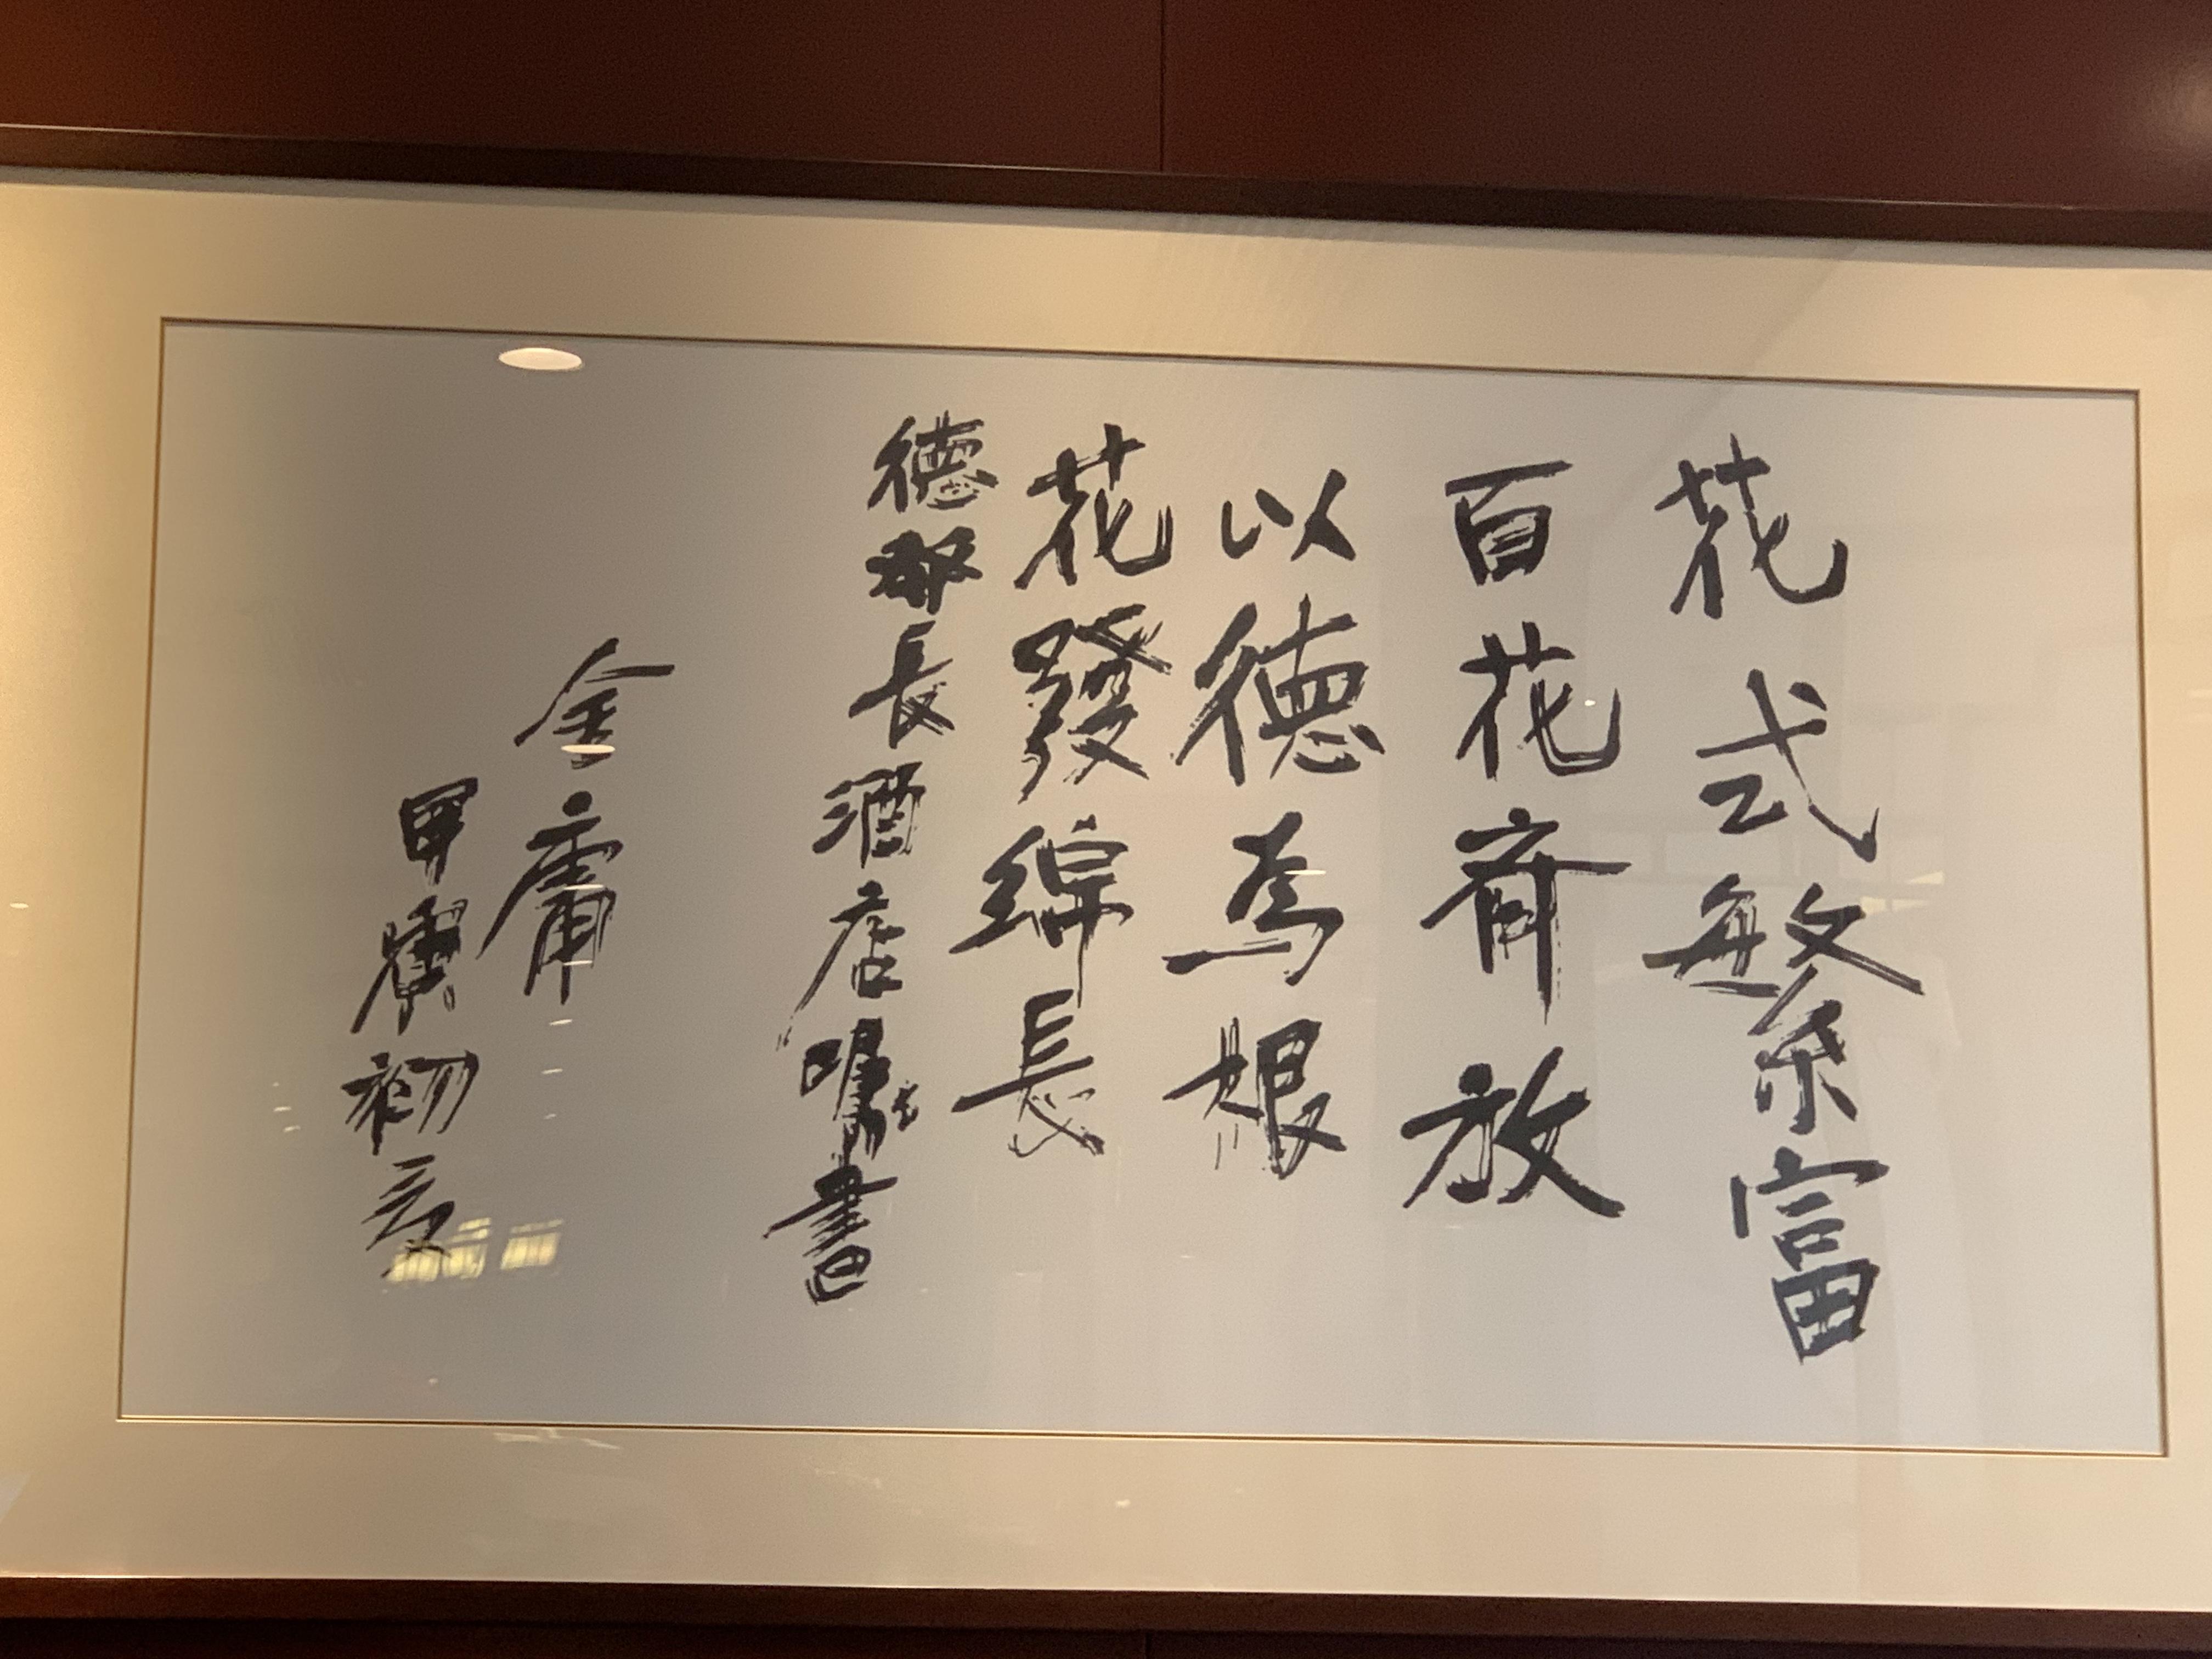 花式繁富
百花齊放
以德為根
花發綿長
德都長酒店囑書
金庸
甲庚初夏